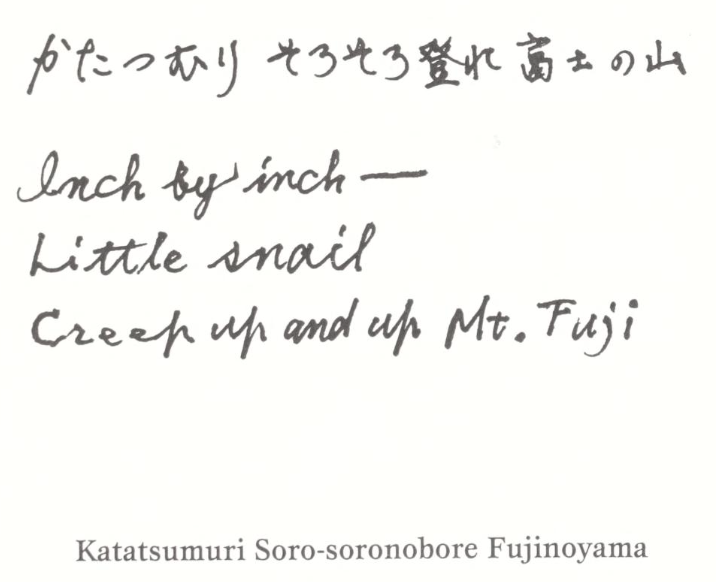 かたつむり そろそろ登れ 富士の山
Inch by inch —
Little snail
Creep up and up Mt. Fuji
Katatsumuri Soro-soronobore Fujinoyama